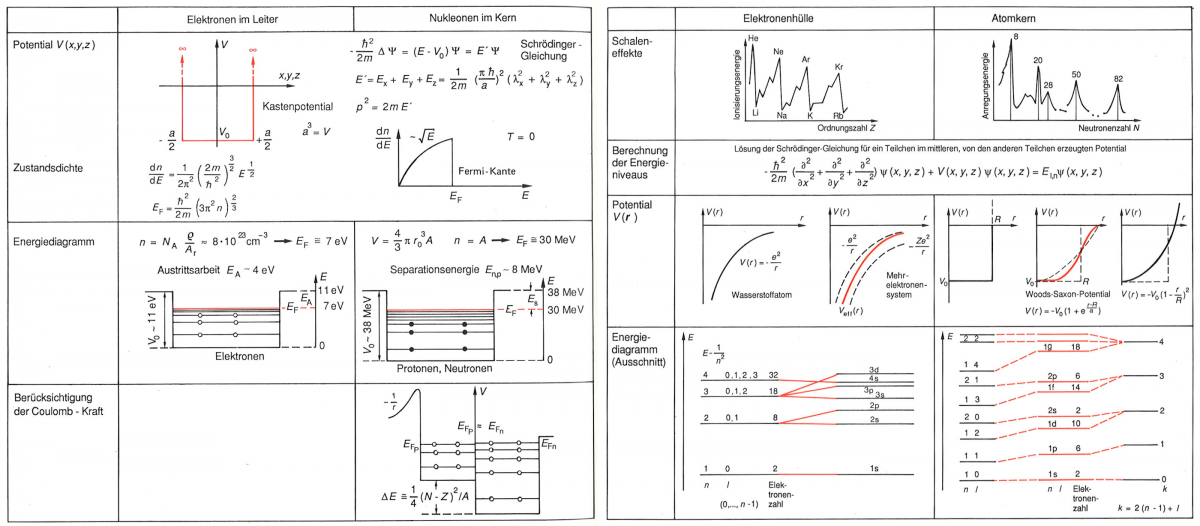 Elektronen im Leiter
Nukleonen im Kern
Potential V(x,y,z)
∞
∞
V
x,y,z
Kastenpotential
- a/2
V₀
+ a/2
a³ = V
- ħ²/2m Δ Ψ = (E - V₀) Ψ = E′ Ψ
Schrödinger-
Gleichung
E′ = Eₓ + E_y + E_z = 1/2m (πħ/a)² (λₓ² + λ_y² + λ_z²)
p² = 2mE′
dn/dE
~√E
T = 0
Fermi-Kante
E_F
E
Zustandsdichte
dn/dE = 1/2π² (2m/ħ²)^3/2 E^1/2
E_F = ħ²/2m (3π²n)^2/3
Energiediagramm
n = N_A ϱ/A_r ≈ 8·10²³cm⁻³ → E_F ≅ 7 eV
Austrittsarbeit E_A ~ 4 eV
V₀ ~ 11 eV
E
11 eV
E_A
E_F
7 eV
0
Elektronen
V = 4/3 π r₀³ A n = A → E_F ≅ 30 MeV
Separationsenergie E_n,p ~ 8 MeV
V₀ ~ 38 MeV
E
38 MeV
E_s
E_F
30 MeV
0
Protonen, Neutronen
Berücksichtigung
der Coulomb-Kraft
- 1/r
V
E_Fp ≈ E_Fn
E_Fp
E_Fn
ΔE ≅ 1/4 (N - Z)²/A
Elektronenhülle
Atomkern
Schalen-
effekte
Ionisierungsenergie
He
Ne
Ar
Kr
Li
Na
K
Rb
Ordnungszahl Z
Anregungsenergie
8
20
28
50
82
Neutronenzahl N
Berechnung
der Energie-
niveaus
Lösung der Schrödinger-Gleichung für ein Teilchen im mittleren, von den anderen Teilchen erzeugten Potential
- ħ²/2m (∂²/∂x² + ∂²/∂y² + ∂²/∂z²) ψ(x, y, z) + V(x, y, z) ψ(x, y, z) = E_l,n ψ(x, y, z)
Potential
V(r)
V(r)
r
V(r) = - e²/r
Wasserstoffatom
V(r)
r
- e²/r
- Ze²/r
Mehr-
elektronen-
system
V_eff(r)
V(r)
R
r
V₀
V(r)
r
V₀
R
Woods-Saxon-Potential
V(r) = -V₀(1 + e^(r-R/a))
V(r)
r
V(r) = -V₀(1 - r/R)²
Energie-
diagramm
(Ausschnitt)
E
E - 1/n²
4 0,1,2,3 32
3 0,1,2 18
2 0,1 8
1 0 2
n l Elek-
tronen-
zahl
(0,..., n-1)
3d
4s
3p
3s
2p
2s
1s
E
2 2
1 4
2 1
1 3
2 0
1 2
1 1
1 0
n l
1g 18
2p 6
1f 14
2s 2
1d 10
1p 6
1s 2
n l Elek-
tronen-
zahl
4
3
2
1
0
k
k = 2(n-1) + l